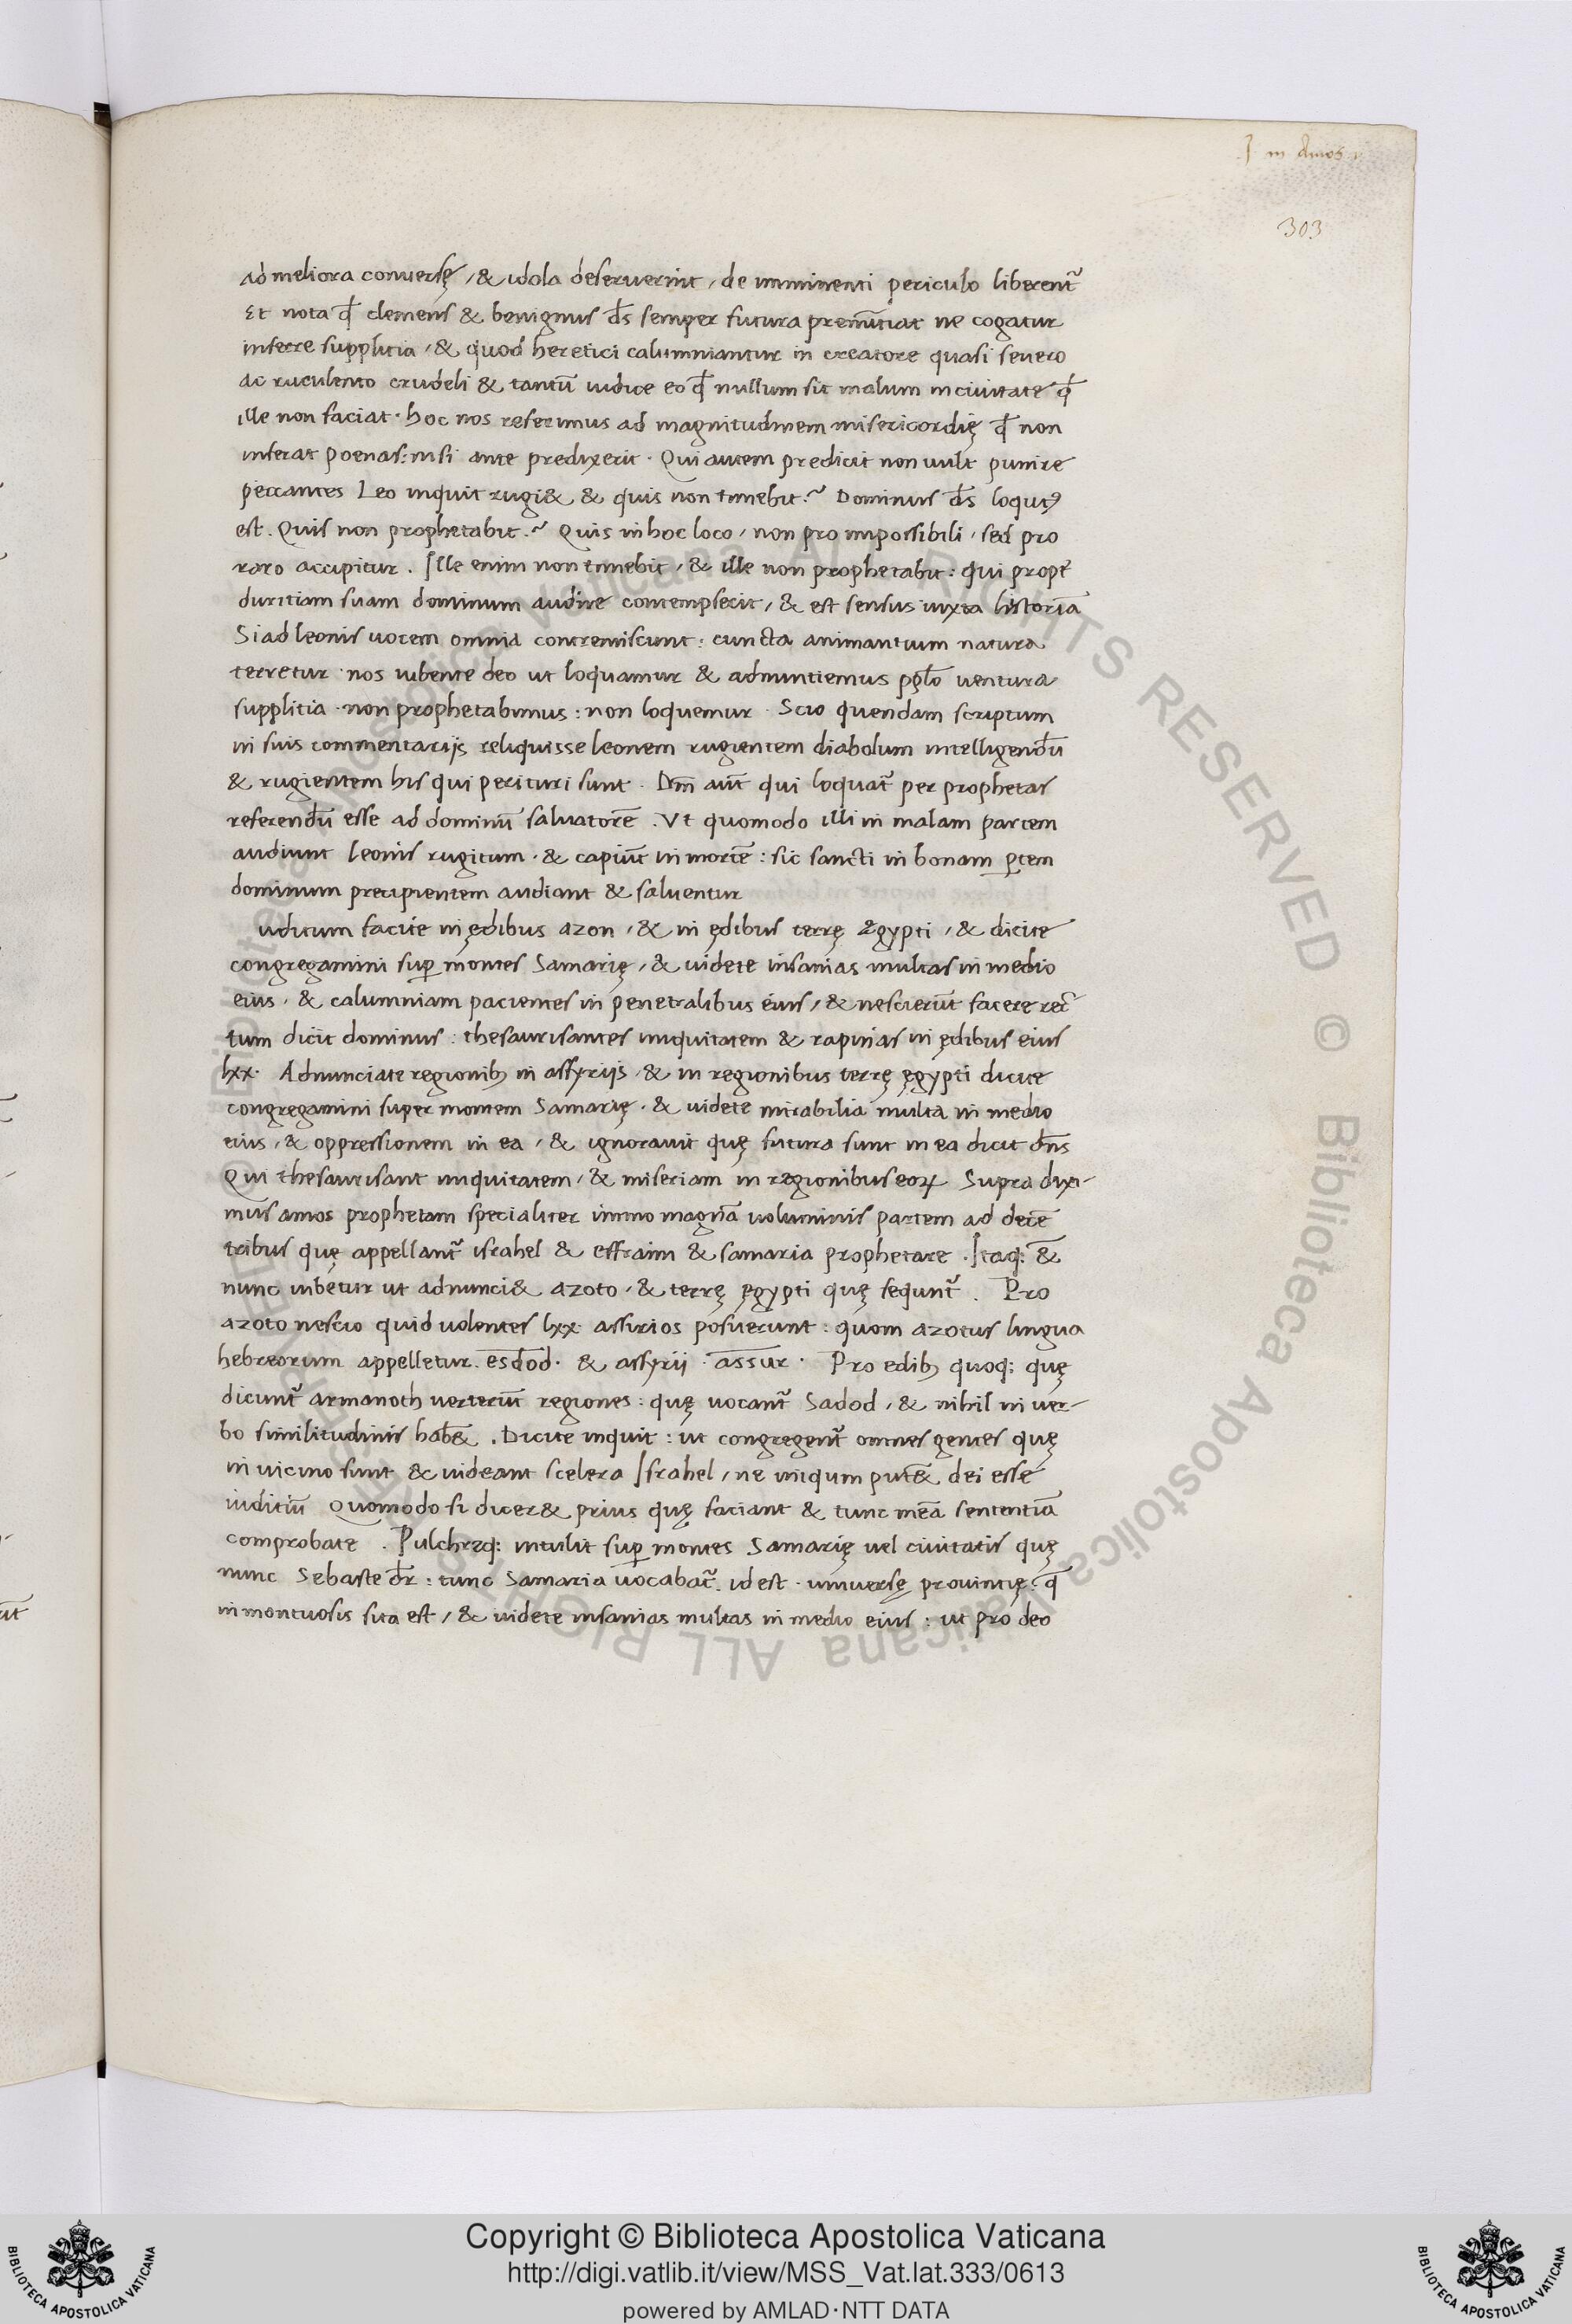 I in Amos
303
ad meliora conuersę, & idola deseruerint, de imminenti periculo liberent᷑
Et nota ꝙ clemens & benignus d̄s semper futura prenūtiat ne cogatur
inferre supplitia, & quod heretici calumniantur in creatore quasi seuero
ac truculento crudeli & tantū iudice eo ꝙ nullum sit malum in ciuitate ꝙ
ille non faciat · hoc nos referimus ad magnitudinem misericordię ꝙ non
inferat poenas: nisi ante predixerit · Qui autem predicit non uult punire
peccantes Leo inquit rugi& & quis non timebit? Dominus d̄s loqutꝰ
est. Quis non prophetabit? Quis in hoc loco, non pro impossibili, sed pro
raro accipitur. Ille enim non timebit, & ille non prophetabit: qui propt᷑
duritiam suam dominum audire contempserit, & est sensus iuxta historiā
Si ad leonis uocem omnia contremiscunt: cuncta animantium natura
terretur · nos iubente deo ut loquamur & adnuntiemus pp̄lo uentura
supplitia · non prophetabimus: non loquemur · Scio quendam scriptum
in suis commentarijs reliquisse leonem rugientem diabolum intelligendū
& rugientem his qui perituri sunt · Dn̄m aūt qui loquat᷑ per prophetas
referendū esse ad dominū saluatorē. Vt quomodo illi in malam partem
audiunt leonis rugitum · & capiūt in mortē: sic sancti in bonam ꝑtem
dominum precipientem audiant & saluentur
uditum facite in ędibus azon, & in ędibus terrę ęgypti, & dicite
congregamini suꝑ montes Samarię, & uidete insanias multas in medio
eius, & calumniam pacientes in penetralibus eius, & nescierūt facere rec-
tum dicit dominus: thesaurisantes iniquitatem & rapinas in ędibus eius
lxx · Adnunciate regionibꝰ in assyrijs · & in regionibus terrę ęgypti dicite
congregamini super montem Samarię · & uidete mirabilia multa in medio
eius, & oppressionem in ea, & ignorauit quę futura sunt in ea dicit dn̄s
Qui thesaurisant iniquitatem, & miseriam in regionibus eoꝝ Supra dixi-
mus amos prophetam specialiter immo magnā uoluminis partem ad decē
tribus quę appellant᷑ israhel & effraim & samaria prophetare. Itaq: &
nunc iubetur ut adnunci& azoto, & terrę ęgypti quę sequnt᷑. Pro
azoto nescio quid uolentes lxx · assirios posuerunt: quom azotus lingua
hebreorum appelletur. esdod · & assyrii · assur · Pro edibꝰ quoq: quę
dicunt᷑ armanoth uerterūt regiones: quę uocant᷑ Sadod, & nihil in uer-
bo similitudinis hab&. Dicite inquit: ut congregent᷑ omnes gentes quę
in uicino sunt & uideant scelera Israhel, ne iniqum put& dei esse
iuditiū Quomodo si dicer& prius quę faciant & tunc meā sententiā
comprobate. Pulchreq: intulit suꝑ montes Samarię uel ciuitatis quę
nunc Sebaste dr̄: tunc Samaria uocabat᷑. id est · uniuersę prouintię: q̄
in montuosis sita est, & uidete insanias multas in medio eius: ut pro deo
Copyright © Biblioteca Apostolica Vaticana
http://digi.vatlib.it/view/MSS_Vat.lat.333/0613
powered by AMLAD·NTT DATA
BIBLIOTECA APOSTOLICA VATICANA
BIBLIOTECA APOSTOLICA VATICANA
Biblioteca Apostolica Vaticana ALL RIGHTS RESERVED © Biblioteca Apostolica Vaticana ALL RIGHTS RESERVED ©